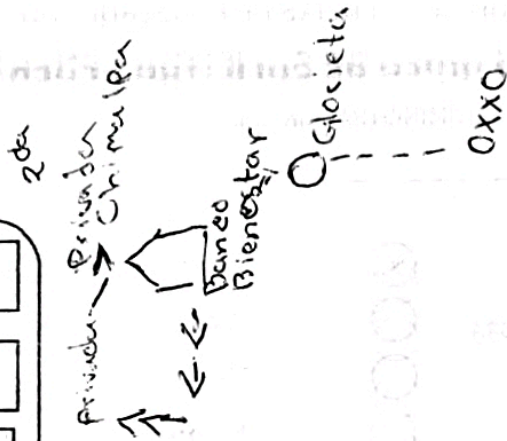 2da
Privada
Privada
Chimalpa
Banco
Bienestar
Glorieta
OXXO